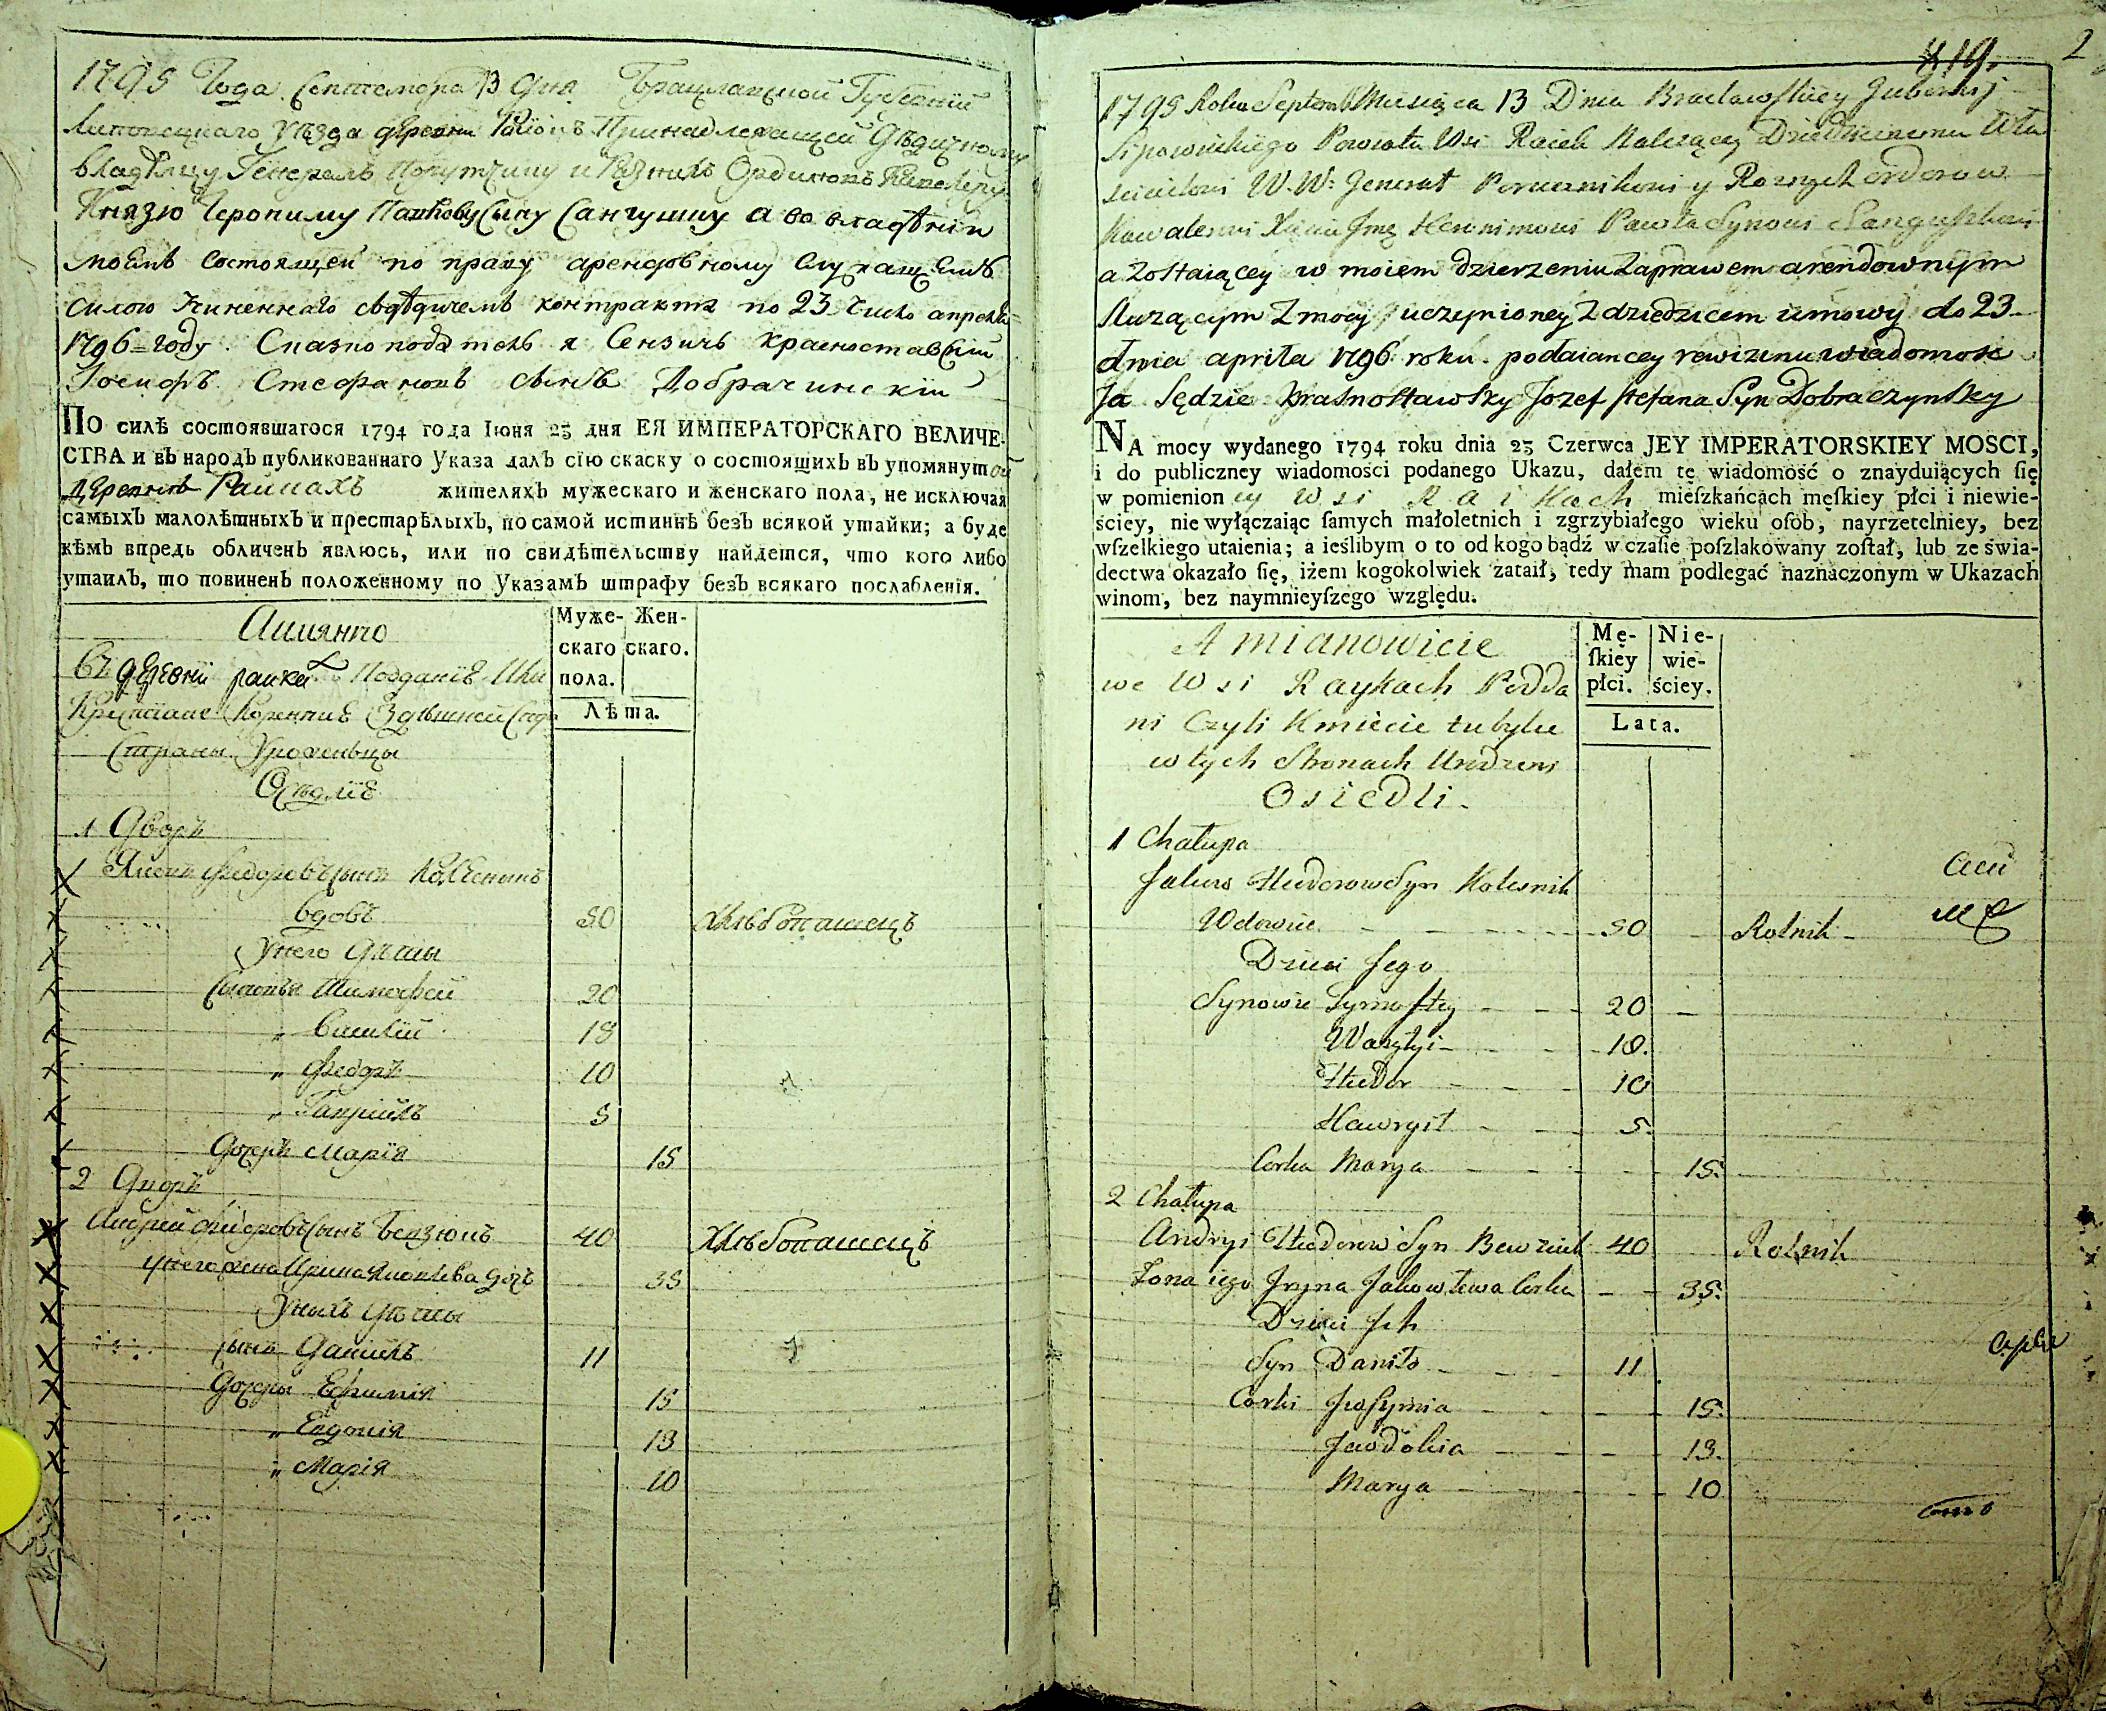 1795 Года Сентемвра 13 Дня Брацлавской Губерніи
Липовецкаго уѣзда деревни Раіокъ Принадлежащей Дѣдичному
владѣлцу Генералъ Порутчику и Разнихъ Ординовъ Кавалеру
Князю Іерониму Павлову Сыну Сангушку а во владѣніи
моемъ состоящей по праву арендовному служащемъ
силою учиненнаго съ дѣдичемъ контракта по 23 число апреля
1796 году. Сказкоподатель я Сензичъ Красноставскій
Іосифъ Стефановъ сынъ Добрачинскій
По силѣ состоявшагося 1794 года Іюня 23 дня ЕЯ ИМПЕРАТОРСКАГО ВЕЛИЧЕ-
СТВА и въ народъ публикованнаго Указа далъ сію скаску о состоящихъ въ упомянутой
деревнѣ Райкахъ жителяхъ мужескаго и женскаго пола, не исключая
самыхъ малолѣтныхъ и престарѣлыхъ, по самой истиннѣ безъ всякой утайки; а буде
кѣмъ впредь обличенъ явлюсь, или по свидѣтельству найдется, что кого либо
утаилъ, то повиненъ положенному по Указамъ штрафу безъ всякаго послабленія.
Аимянно
Муже- Жен-
скаго скаго.
пола.
Лѣта.
Въ деревни райках Подданіе
Крестіане Коренніе Здѣшней
Страны Уроженьцы
Осѣдліе
1 Дворъ
Яковъ Федоровъ сынъ Колесникъ
вдовъ 50 Хлѣбопашецъ
У него Дѣти
Сыновья Тимофей 20
„ Василій 18
„ Федоръ 10
„ Гаврійлъ 5
Дочерь Марія 15
2 Дворъ
Андрей Федоровъ сынъ Бевзюкъ 40 Хлѣбопашецъ
у него жена Ирина Яковлева дочь 35
У нихъ дѣти
сынъ Данійлъ 11
Дочеры Ефимія 15
„ Евдокія 13
„ Марія 10
419. 2
1795 Roku Septemb Miesiąca 13 Dnia Bracławskiey Gubernij
Lipowieckiego Powiatu Wsi Raiek Należącey Dziedzicznemu Wła
scicielowi W. W: Generał Porucznikowi y Roznych orderow
Kawalerowi Xięciu Jmę Heronimowi Pawła Synowi Sanguszkowi
a Zostaiącey w moiem dzierzeniu Zaprawem arendownym
słuzącym Z mocy uczynioney Z dziedzicem umowy do 23
dnia aprila 1796 roku. podaiancey rewizinu wiadomosc
Ja Sędzic Krasnostawsky Jozef Stefana Syn Dobraczynsky
NA mocy wydanego 1794 roku dnia 23 Czerwca JEY IMPERATORSKIEY MOSCI,
i do publiczney wiadomości podanego Ukazu, dałem tę wiadomość o znayduiących ſię
w pomienioney Wsi Raikach mieſzkańcach męſkiey płci i niewie-
ściey, nie wyłączaiąc ſamych małoletnich i zgrzybiałego wieku oſób, nayrzetelniey, bez
wſzelkiego utaienia; a ieślibym o to od kogo bądź w czaſie poſzlakowany zoſtał, lub ze świa-
dectwa okazało ſię, iżem kogokolwiek zataił, tedy mam podlegać naznaczonym w Ukazach
winom, bez naymnieyſzego względu.
A mianowicie
Mę- Nie-
ſkiey wie-
płci. ściey.
Lata.
we Wsi Raykach Podda
ni Czyli Kmiecie tubylce
w tych Stronach Urodzeni
Osiedli.
1 Chałupa
Jakow Hwdorow Syn Kolesnik
Wdowiec 50 Rolnik
Dzieci Jego
Synowie Tymoftey 20
Wasylyi 18.
Hwdor 10
Hawrył 5.
Corka Marya 15.
2 Chałupa
Andryi Hwdorow Syn Bewziuk 40 Rolnik
Zona iego Iryna Jakowlewa Corka 35.
Dzieci Ich
Syn Daniło 11
Corki Jwfymia 15.
Jawdokia 13.
Marya 10